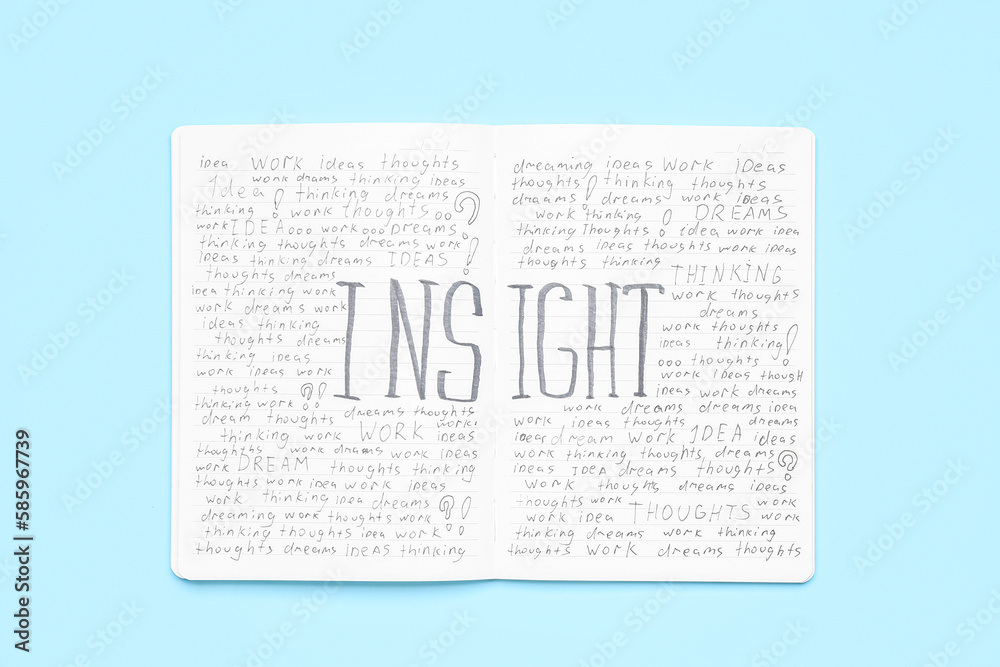 idea WORK ideas thoughts
work drams thinking ideas
Idea! thinking dreams
thinking! work thoughts oo?
work IDEA ooo work ooo DReams
thinking thoughts dreams work!
Ideas thinking dreams IDEAS
thoughts dreams
idea thinking work
work dreams work
ideas thinking
thoughts dreams
thinking ideas
work ideas work
thoughts ?!
thinking work
dreams thoughts
dream thoughts work
thinking work WORK ideas
thoughths work dreams work ideas
work DREAM thoughts thinking
thoughts work idea work ideas
work thinking idea dreams
dreaming work thoughts work ?!
thinking thoughts idea work
thoughts dreams IDEAS thinking
INSIGHT
dreaming ideas work IDeas
thoughts! thinking thoughts
draams dreams work ideas
work thinking ! DREAMS
thinking Thoughts idea work idea
dreams Ideas thoughts work ideas
thoughts thinking
THINKING
work thoughts
dreams
work thoughts
ideas thinking!
ooo thoughts
work Ideas though
ideas work dreams
work dreams dreams idea
work ideas thoughts dreams
idear dream work IDEA ideas
work thinking thoughts, dreams
ideas IDEA dreams thoughts?
work thoughts dreams ideas
thoughts work work
work idea THOUGHTS work
thinking dreams work thinking
thoughts work dreams thoughts
Adobe Stock | #585967739